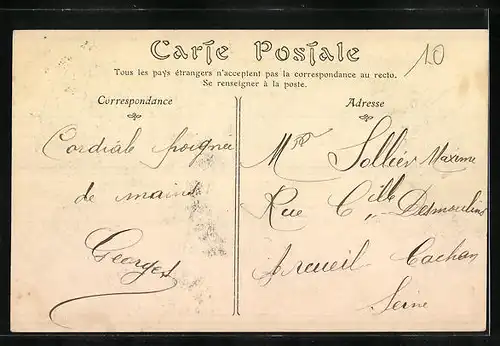 Carte Postale
10
Tous les pays étrangers n'acceptent pas la correspondance au recto.
Se renseigner à la poste.
Correspondance
Cordiale poignée
de mains
Georges
Adresse
Mr Sollier Maxime
Rue Cille Desmoulins
Arcueil Cachan
Seine